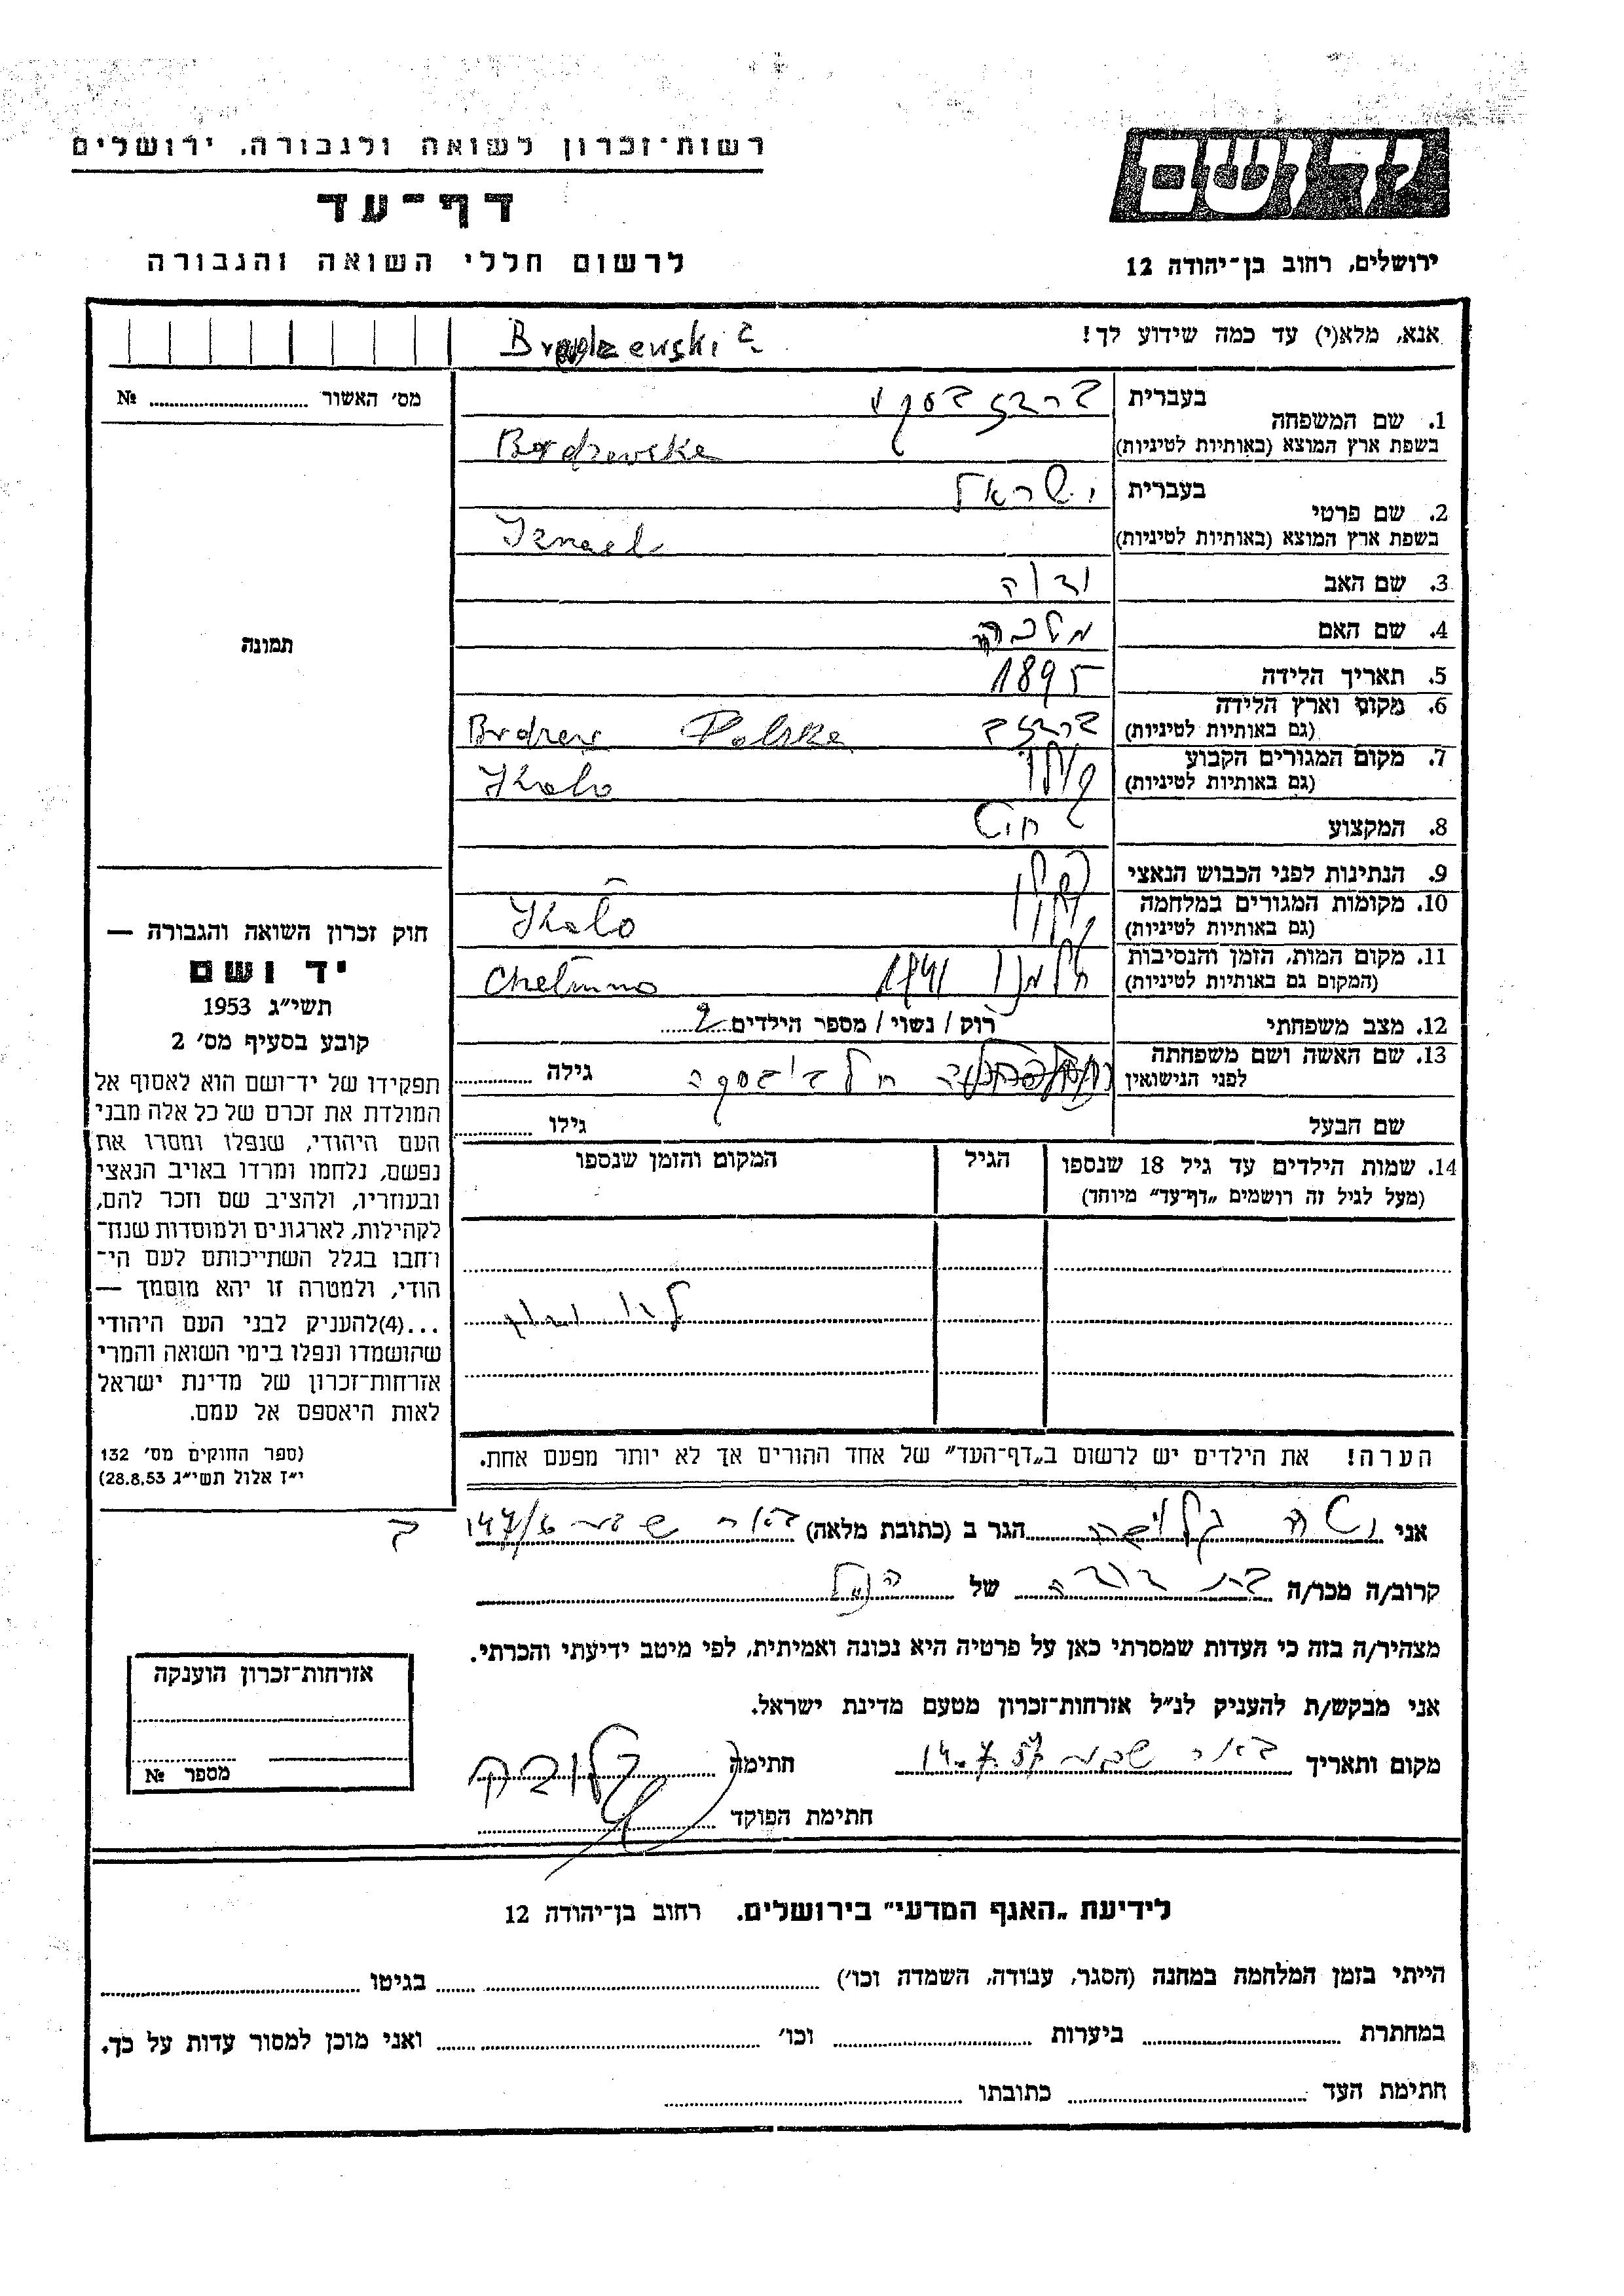 רשות-זכרון לשואה ולגבורה, ירושלים
דף-עד
לרשום חללי השואה והגבורה
יד ושם
ירושלים, רחוב בן-יהודה 12
אנא, מלא(י) עד כמה שידוע לך!
מס׳ האשור № 
1. שם המשפחה
בעברית
בשפת ארץ המוצא (באותיות לטיניות)
2. שם פרטי
בעברית ישראל
בשפת ארץ המוצא (באותיות לטיניות) Iznael
3. שם האב
4. שם האם מלכה
5. תאריך הלידה 1895
6. מקום וארץ הלידה
(גם באותיות לטיניות) Polska
7. מקום המגורים הקבוע
(גם באותיות לטיניות)
8. המקצוע
9. הנתינות לפני הכבוש הנאצי
10. מקומות המגורים במלחמה
(גם באותיות לטיניות)
11. מקום המות, הזמן והנסיבות
(המקום גם באותיות לטיניות) חלמנו 1941 Chełmno
12. מצב משפחתי רוק / נשוי / מספר הילדים 2
13. שם האשה ושם משפחתה
לפני הנישואין
גילה
שם הבעל
גילו
14. שמות הילדים עד גיל 18 שנספו
(מעל לגיל זה רושמים „דף-עד״ מיוחד)
הגיל
המקום והזמן שנספו
הערה! את הילדים יש לרשום ב„דף-העד״ של אחד ההורים אך לא יותר מפעם אחת.
תמונה
חוק זכרון השואה והגבורה —
יד ושם
תשי״ג 1953
קובע בסעיף מס׳ 2
תפקידו של יד-ושם הוא לאסוף אל
המולדת את זכרם של כל אלה מבני
העם היהודי, שנפלו ומסרו את
נפשם, נלחמו ומרדו באויב הנאצי
ובעוזריו, ולהציב שם וזכר להם,
לקהילות, לארגונים ולמוסדות שנח-
רחבו בגלל השתייכותם לעם הי-
הודי, ולמטרה זו יהא מוסמך —
...(4)להעניק לבני העם היהודי
שהושמדו ונפלו בימי השואה והמרי
אזרחות-זכרון של מדינת ישראל
לאות היאספם אל עמם.
(ספר החוקים מס׳ 132
י״ז אלול תשי״ג 28.8.53)
אני הגר ב (כתובת מלאה) באר שבע
קרוב/ה מכר/ה בת דודה של הנ״ל
מצהיר/ה בזה כי העדות שמסרתי כאן על פרטיה היא נכונה ואמיתית, לפי מיטב ידיעתי והכרתי.
אני מבקש/ת להעניק לנ״ל אזרחות-זכרון מטעם מדינת ישראל.
מקום ותאריך באר שבע חתימה
חתימת הפוקד
אזרחות-זכרון הוענקה
מספר №
לידיעת „האגף המדעי״ בירושלים. רחוב בן-יהודה 12
הייתי בזמן המלחמה במחנה (הסגר, עבודה, השמדה וכו׳) בגיטו
במחתרת ביערות וכו׳ ואני מוכן למסור עדות על כך.
חתימת העד כתובתו